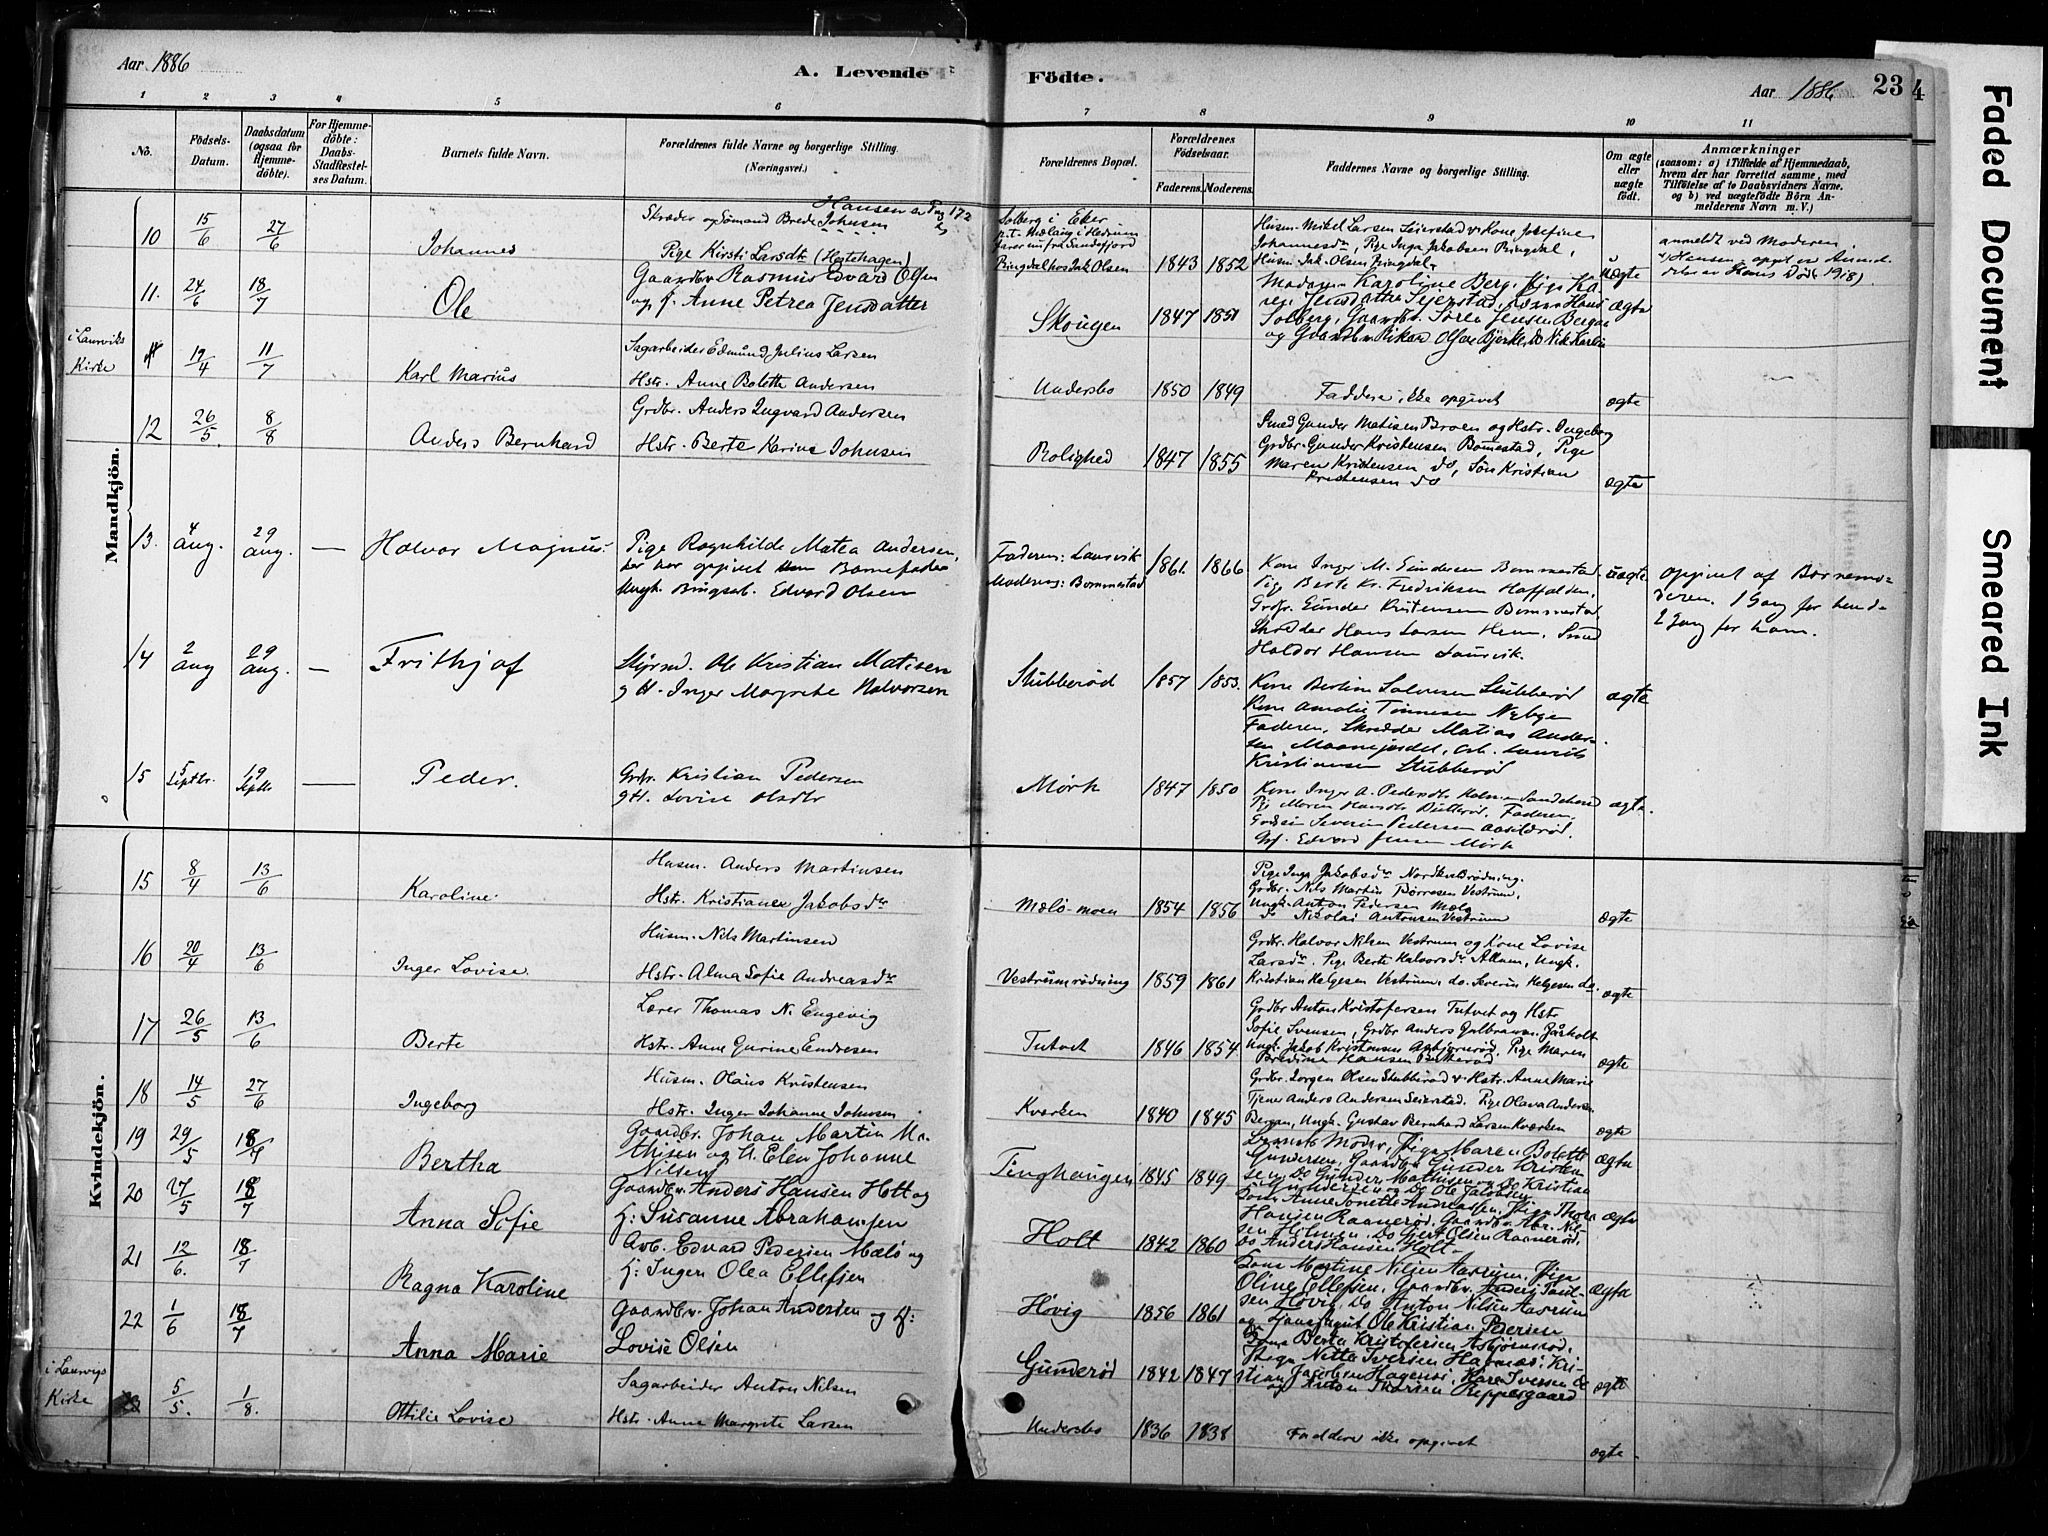 Aar 1886
A. Levende Födte.
Aar 1886
23
4
1 2 3 4 5 6 7 8 9 10 11
No.
Födsels-Datum.
Daabsdatum (ogsaa for Hjemme-döbte).
For Hjemme-döbte: Daabs-Stadfæstel-ses Datum.
Barnets fulde Navn.
Forældrenes fulde Navne og borgerlige Stilling. (Næringsvei.)
Forældrenes Bopæl.
Forældrenes Födselsaar.
Faderens. Moderens.
Faddernes Navne og borgerlige Stilling.
Om ægte eller uægte födt.
Anmærkninger
(saasom: a) i Tilfælde af Hjemmedaab, hvem der har forrettet samme, med Tilföielse af to Daabsvidners Navne. og b) ved uægtefödte Börn Anmelderens Navn m. V.)
Mandkjön.
10 15/6 27/6 Johannes
Skræder og Sømand Brede Johnsen
Hansen
Pige Kirsti Larsdtr (Hestehagen)
Solberg i Eker
Ringdal hos Jak. Olsen 1843 1852
Husm. Mikel Larsen Seierstad & Kone Josefine
Johannesdr, Pige Inga Jakobsen Ringdal,
Husm. Jak. Olsen Ringdal
uægte
anmeldt ved Moderen.
11. 24/6 18/7 Ole
Gaardbr. Rasmus Edvard Olsen
og H. Anne Petrea Jensdatter
Skougen 1847 1851
Madam Karoline Berg, Pige Ka-
ren Jensdatter Seierstad, Hans
Solberg, Gaardbr. Søren Jensen Bergan
og Gaardbr. Rikard Olsen Bjerke
ægte
i Laurviks Kirke
19/4 11/7 Karl Marius
Sagarbeider Edmund Julius Larsen
Hstr. Anne Bolette Andersen
Undersbo 1850 1849
Faddere ikke opgivet
ægte
12 26/5 8/8 Anders Bernhard
Grdbr. Anders Ingvard Andersen
Hstr. Berte Karine Johnsen
Rolighed 1847 1855
Smed Gunder Matisen Broen og Hstr. Ingeborg
Grdbr. Gunder Kristensen Bomestad, Pige
Maren Kristensen do, Søn Kristian
Kristensen do
ægte
13. 4 Aug. 29 Aug. — Halvor Magnus.
Pige Ragnhilde Matea Andersen,
har opgivet som Barnefader
Ungk. Bingsarb. Edvard Olsen
Faderen: Laurvik
Moderen: Bommestad 1861. 1866
Kone Inger M. Gundersen Bommestad.
Pige Berte Kr. Fredriksen Haffalden,
Grdbr. Gunder Kristensen Bommestad
Skrædder Hans Larsen Hem, Smed
Haldor Hansen Laurvik.
uægte
Opgivet af Barnemo-
deren. 1 Gang for hende
2 Gang for ham.
14 2 Aug 29 Aug. — Frithjof
Styrmd. Ole Kristian Matisen
og H. Inger Margrete Halvorsen
Stubberød 1857 1853.
Kone Bertine Salvesen Stubberød
Kone Amalie Tønnesen Nybyen
Faderen, Skrædder Matias Ander-
sen Maanejordet, Arb. Laurits
Kristiansen Stubberød
ægte
15 5 Septbr. 19 Septb. — Peder.
Grdbr. Kristian Pedersen
og H. Lovise Olsdtr
Mørk 1847 1850
Kone Inger A. Pedersdtr Holm Sandeherred
Pige Maren Hansdtr Butterød. Faderen,
Severin Pedersen
Edvard Jensen Mørk
ægte.
Kvindekjön.
15 8/4 13/6 Karoline.
Husm. Anders Martinsen
Hstr. Kristiane Jakobsdr
Mælø-moen 1854 1856
Pige Inga Jakobsdr Nordkvelrødning.
Grdbr. Nils Martin Børresen Vestrum,
Ungk. Anton Pedersen Mælø
do Nikolai Antonsen Vestrum
ægte
16 20/4 13/6 Inger Lovise.
Husm. Nils Martinsen
Hstr. Alma Sofie Andreasdr
Vestrumrødning 1859 1861
Grdbr. Halvor Nilsen Vestrum og Kone Lovise
Larsdr. Pige Berte Halvorsdr Allum, Ungk.
Kristian Helgesen Vestrum, do. Severin Helgesen do.
ægte
17 26/5 13/6 Berte
Lærer Thomas N. Engevig
Hstr. Anne Gurine Endresen
Tutvet 1846 1854
Grdbr Anton Kristofersen Tutvet og Hstr
Sofie Svensen, Grdbr Anders Gulbrandsen
Ungk. Jakob Kristensen Asbjørnrød. Pige Maren
Bredine Hansen
ægte
18 14/5 27/6 Ingeborg
Husm. Olaus Kristensen
Hstr. Inger Johanne Johnsen
Kværken 1840 1845
Grdbr. Jørgen Olsen Stubberød & Hstr. Anne Marie
Tjener Anders Andersen Seierstad. Pige Olava Andersen
Bergan, Ungk. Gustav Bernhard Larsen Kværken
ægte
19 29/5 18/7 Bertha
Gaardbr. Johan Martin Ma-
thisen og H. Elen Johanne
Nilsen
Tinghaugen 1845 1849
Barnets Moder, Pige Maren Bolette
Gundersen, Gaardbr. Gunder Kristen
sen, Do Gunder Mathisen og Do Kristian
Gundersen og Do Ole Jacobsen
ægte
20 27/5 18/7 Anna Sofie
Gaardbr. Anders Hansen Holt og
H: Susanne Abrahamsen
Holt 1842 1860
Kone Anne Andreassen, Pige Thora
Hansen Raanerød, Gaardbr. Abr. Nil-
sen Holmen, Do Gjert Olsen Raanerød,
Do Anders Hansen Holt
ægte
21 12/6. 18/7 Ragna Karoline
Arb. Edvard Pedersen Mælø og
H: Ingen Olea Ellefsen
Høvig 1856 1861
Kone Martine Nilsen Aasrum, Pige
Oline Ellefsen, Gaardbr. Anders Paul-
sen Høvig, Do Anton Nilsen Aasrum
og Ole Kristian Pedersen
ægte
22 1/6 18/7 Anna Marie
Gaardbr. Johan Andersen og H:
Lovise Olsen
Gunderød 1842 1847
Kone Berta Kristofersen Asbjørnrød,
Pige Netta Iversen Havnes, Kri-
stian Jacobsen Hagenes, Kare Iversen do
og Anton Thorsen Reppesgaard
ægte
i Laurvigs Kirke
5/5. 1/8. Ottilie Lovise
Sagarbeider Anton Nilsen
Hstr. Anne Margrete Larsen
Undersbo 1836 1838
Faddere ikke opgivet
ægte
Faded Document
Smeared Ink